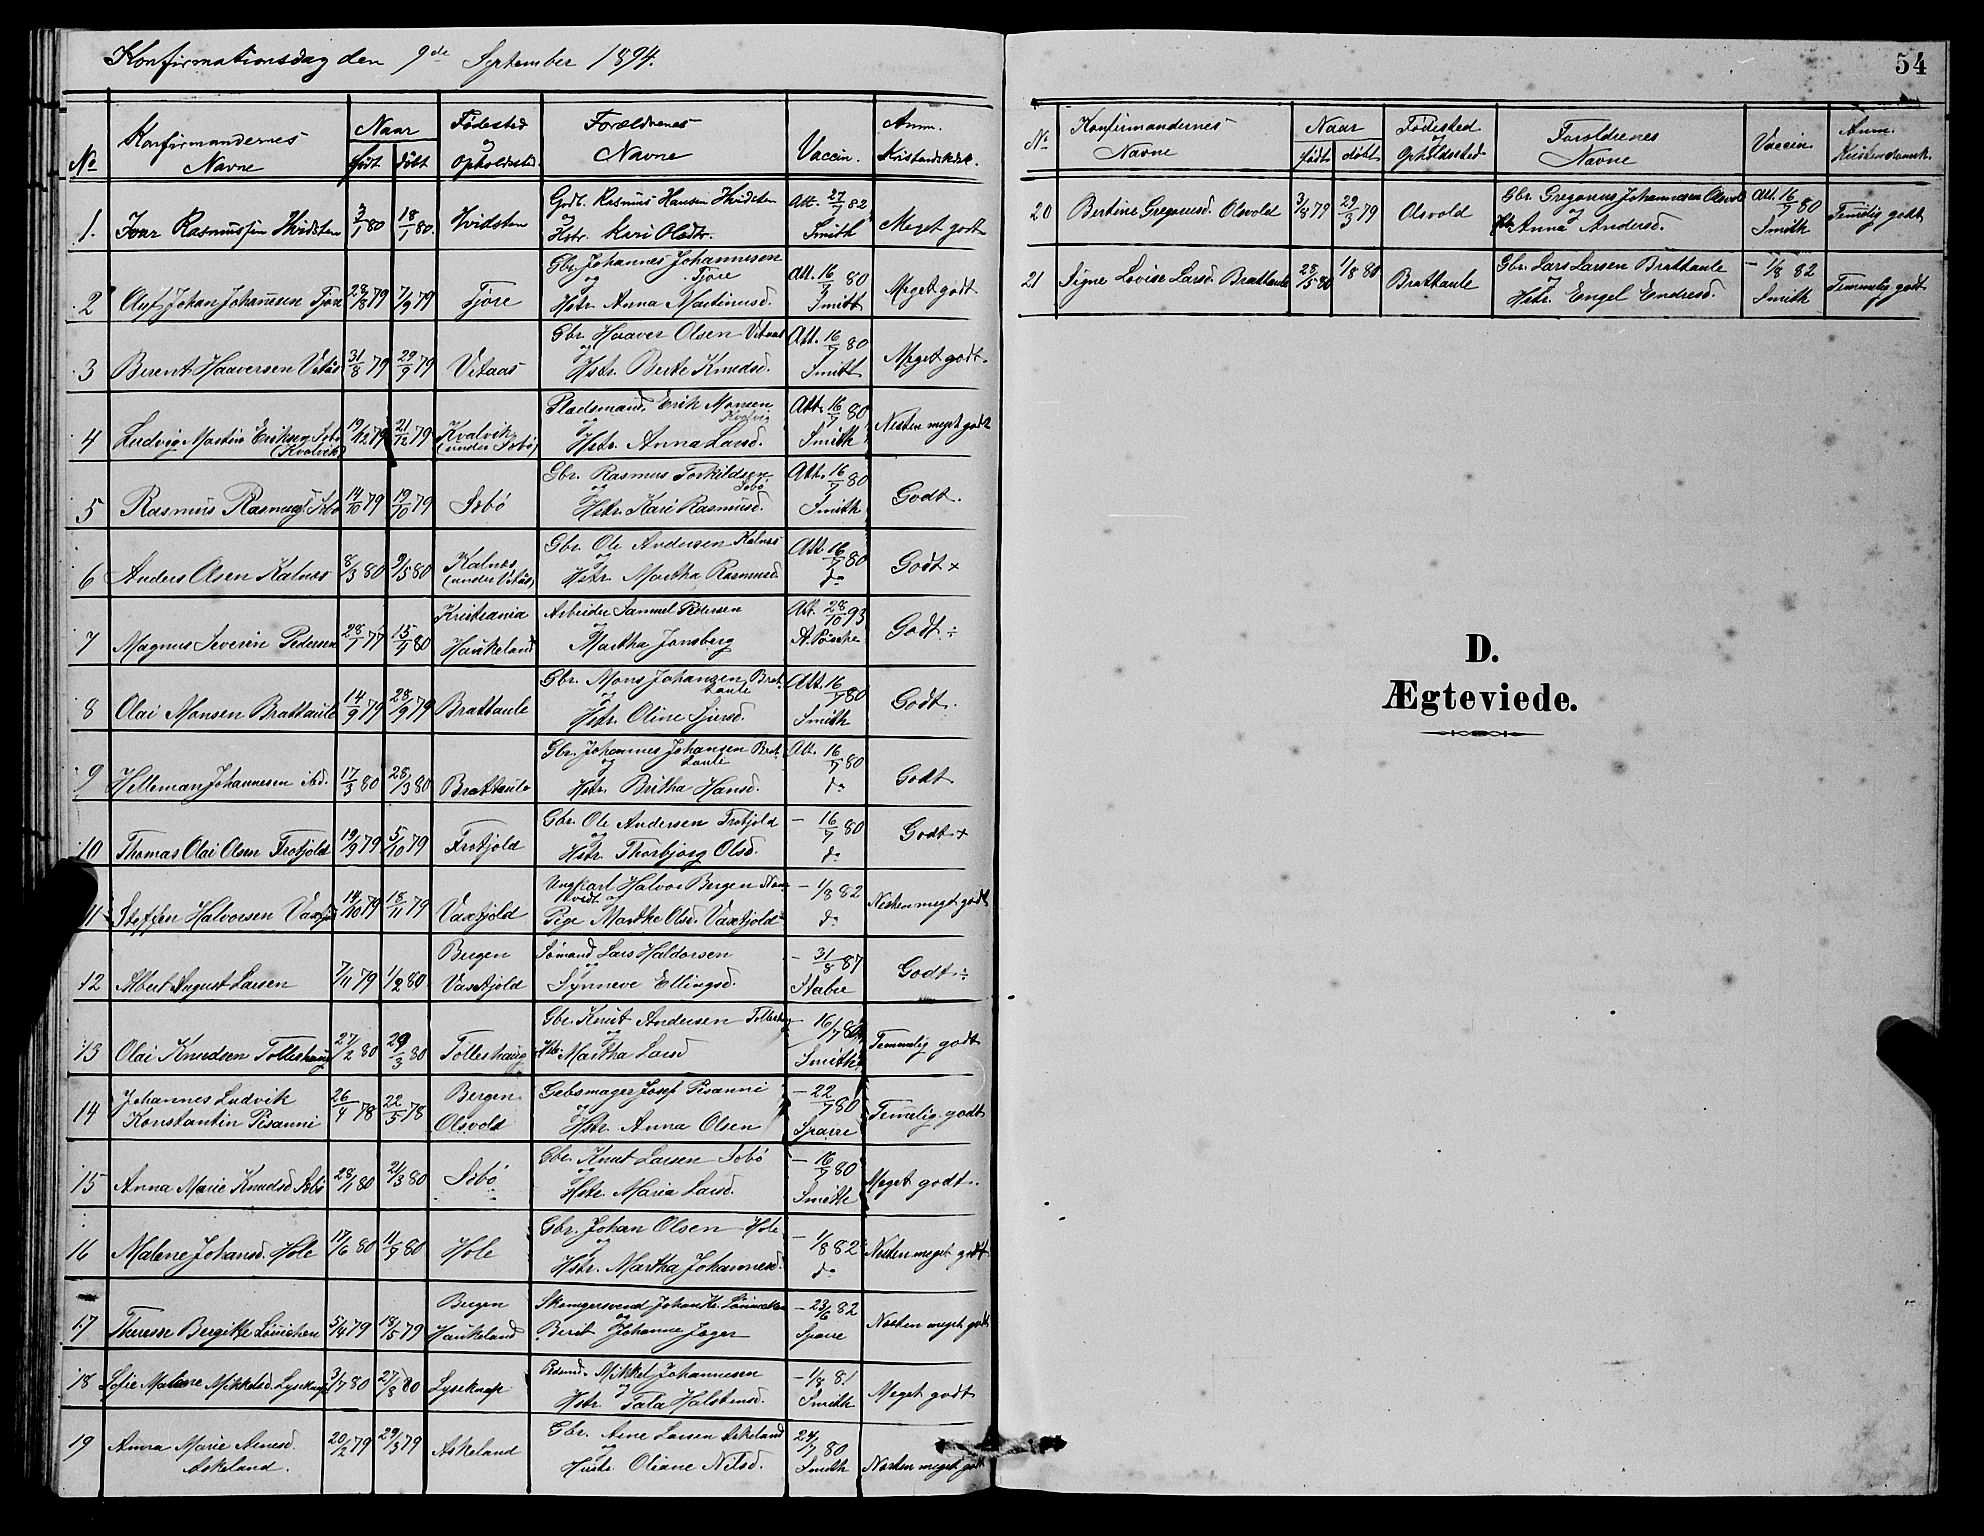 Konfirmationsdag den 9de September 1894.
No Konfirmandernes Navne Naar født døbt Fødested og Opholdssted Forældrenes Navne Vaccin. Anm. Kristendskdsk.
1. Ivar Rasmussen Hvidsten 3/1 80 18/1 80. Hvidsten Gbr. Rasmus Hansen Hvidsten og Hstr. Kari Olsdtr. Att. 27/7 82 Smith Meget godt
2 Oluf Johan Johannesen Tjøre 28/8 79 7/9 79 Tjøre Gbr. Johannes Johannesen Tjøre og Hstr. Anna Martinusd. Att. 16/7 80 Smith Meget godt
3 Berent Haaversen Vetås 31/8 79 29/9 79 Vetaas Gbr. Haaver Olsen Vetaas og Hstr. Berte Knudsd. Att. 16/7 80 Smith Meget godt.
4 Ludvig Martin Eriksen Sebø (Kvalvik) 19/12 79 21/12 79 Kvalvik (under Sebø) Pladsmand Erik Monsen Kvalvig og Hstr. Anna Larsd. Att. 16/7 80 Smith Nesten meget godt
5 Rasmus Rasmuss. Sebø 14/10 79 19/10 79 Sebø Gbr. Rasmus Torkildsen Sebø og Hstr. Kari Rasmusd. Att. 16/7 80 Smith Godt.
6 Anders Olsen Kalnes 8/3 80 9/5 80 Kalnes (under Vetås) Gbr. Ole Andersen Kalnes og Hstr. Martha Rasmusd. Att. 16/7 80 do Godt +
7 Magnus Severin Pedersen 28/7 77 15/7 80 Kristiania Haukeland Arbeider Samuel Pedersen og Martha Jonsberg Att. 28/10 93 Godt ÷
8 Olai Monsen Brattaule 14/9 79 28/9 79 Brattaule Gbr. Mons Johansen Brattaule og Hstr. Oline Sjursd. Att. 16/7 80 Smith Godt.
9 Helleman Johannesen ibd. 17/3 80 28/3 80 Brattaule Gbr. Johannes Johansen Brattaule og Hstr. Britha Hansd. Att. 16/7 80 do Godt
10 Thomas Olai Olsen Trotjold 19/9 79 5/10 79 Trotjold Gbr. Ole Andersen Trotjold og Hstr. Thorbjørg Olsd. — 16/7 80 do Godt +
11 Steffen Halvorsen 14/10 79 18/11 79 Vaxtjold Ungkarl Halvor Bergen og Pige Marthe Olsd. Vaxtjold — 1/8 82 do Nesten meget godt
12 Albert August Larsen 7/11 79 1/2 80 Bergen Vaxtjold Sømand Lars Haldorsen og Synneve Ellingsd. — 31/8 87 Stabel Godt ÷
13 Olai Knudsen Tolleshaug 27/2 80 29/3 80 Tolleshaug Gbr. Knut Andersen Tolleshaug og Hstr. Martha Larsd — 16/7 80 Smith Temmelig godt
14 Johannes Ludvik Konstantin Pisanni 26/4 78 22/5 78 Bergen Olsvold Gibsmager Josef Pisanni og Hstr. Anna Olsen — 22/7 80 Sparre Temelig godt
15 Anna Marie Knudsd Sebø 28/1 80 21/3 80 Sebø Gbr. Knut Larsen Sebø og Hstr. Maria Larsd. — 16/7 80 Smith Meget godt.
16 Malene Johansd. Hole 17/6 80 11/7 80 Hole Gbr. Johan Olsen Hole og Hstr. Martha Johannesd. — 1/8 82 do Nesten meget godt
17 Therese Bergitte Lønichen 5/4 79 18/5 79 Bergen Haukeland Skomgersvend Johan og Berit Johanne Jæger — 23/6 82 Sparre Nesten meget godt
18 Sofie Malene Mikkelsd. Lyseknap 3/7 80 27/8 80 Lyseknap Mikkel Johannesen og Hstr. Tala Halstensd. — 1/8 81 Smith Meget godt
19 Anna Marie Arnesd. Askeland. 20/2 79 29/3 79 Askeland Gbr. Arne Larsen Askeland og Hustr. Oliane Nilsd. 24/7 80 Smith Nesten meget godt
54
No Konfirmandernes Navne Naar født døbt Fødested og Opholdssted Forældrenes Navne Vaccin Anm. Kristendomsk.
20 Bertine Gregoriusd. Olsvold 3/3 79 29/3 79 Olsvold Gbr. Gregorius Johannesen Olsvold og Hstr. Anna Andersd. Att. 16/7 80 Smith Temelig godt
21 Signe Lovise Larsd. Brattaule 28/5 80 1/8 80 Brattaule Gbr. Lars Larsen Brattaule og Hstr. Engel Endresd. — 1/8 82 Smith Temmelig godt
D.
Ægteviede.